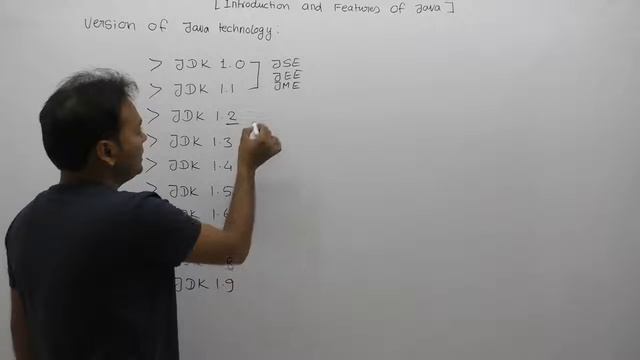 [Introduction and Features of Java]
Version of Java technology:
> JDK 1.0 ] JSE
JEE
> JDK 1.1 JME
> JDK 1.2
> JDK 1.3
> JDK 1.4
> JDK 1.5
JDK 1.6
8
JDK 1.9